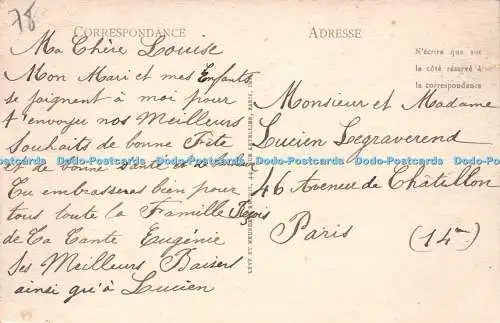 78
CORRESPONDANCE
Ma Chère Louise
Mon Mari et mes Enfants
se joignent à moi pour
t'envoyer nos Meilleurs
Souhaits de bonne Fête
et de bonne Santé et de
Tu embrasseras bien pour
tous toute la Famille
de Ta Tante Eugénie
Ses Meilleurs Baisers
ainsi qu'à Lucien
ADRESSE
N'écrire que sur
le côté réservé à
la correspondance
Monsieur et Madame
Lucien Legraverend
46 Avenue de Châtillon
Paris (14me)
LÉVY ET NEURDEIN RÉUNIS, 44, RUE LETELLIER, PARIS
Dodo-Postcards Dodo-Postcards Dodo-Postcards Dodo-Postcards Dodo-Postcards Dodo-Postcards